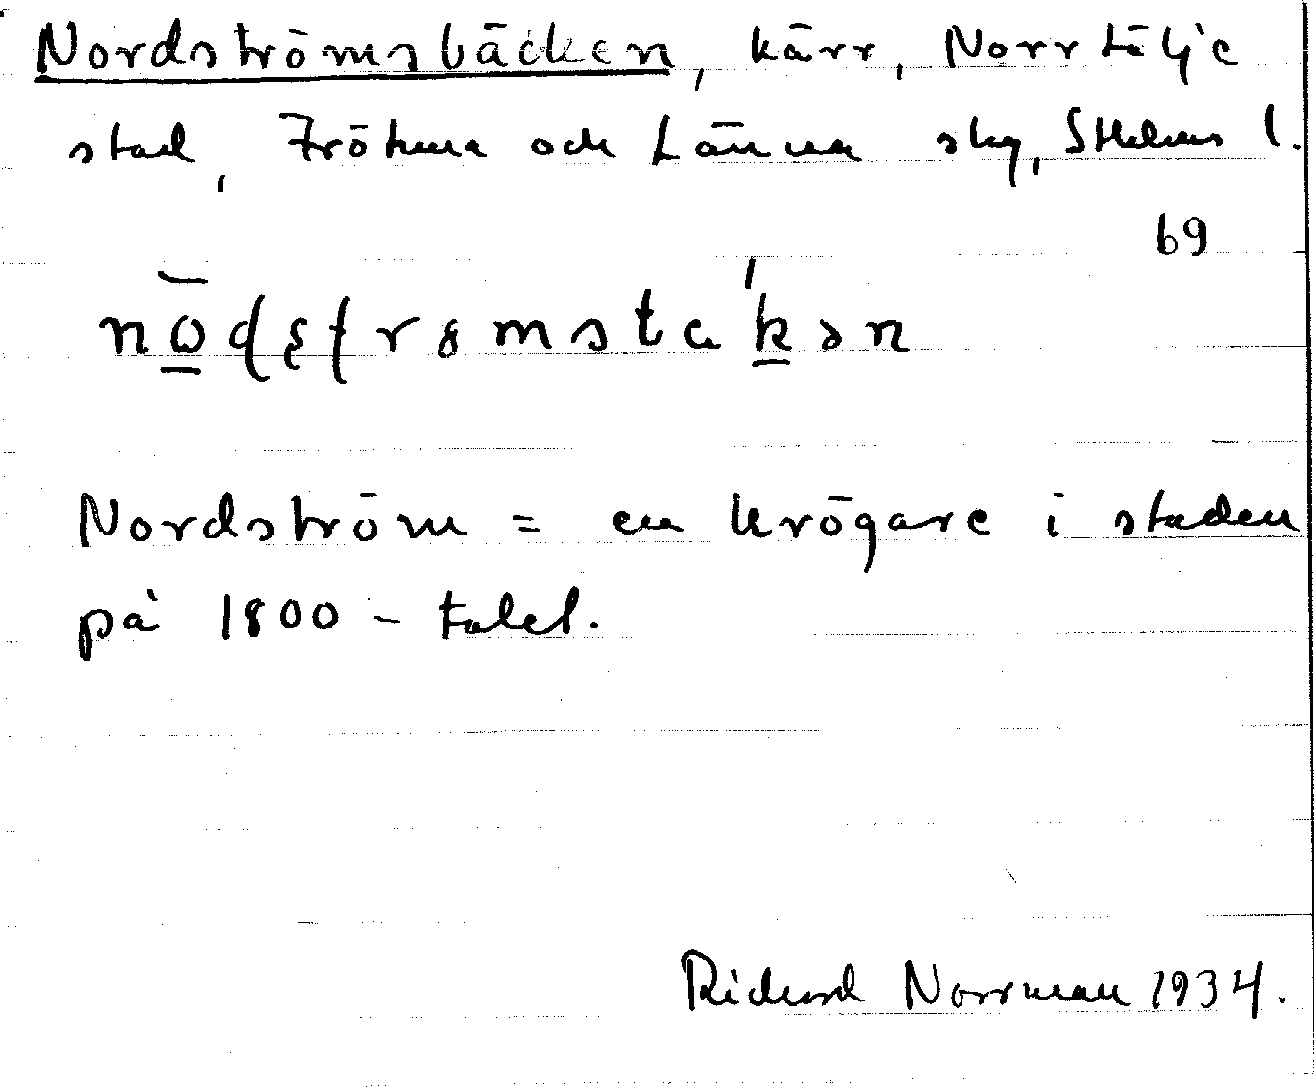 Nordströmsbäcken, kärr, Norrtälje
stad, Frötuna och Länna skg, Sthlms l.
69
Nordström = en krögare i staden
på 1800-talet.
Richard Norrman 1934.